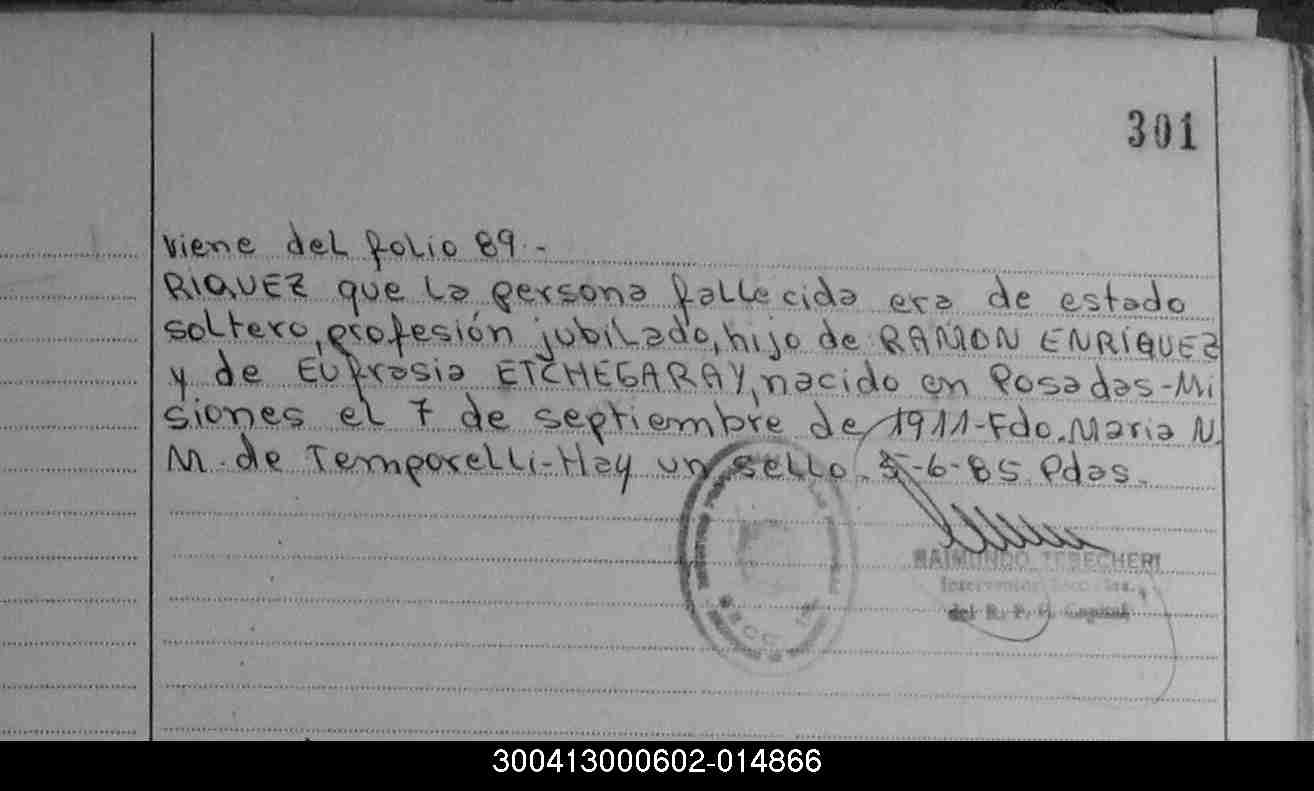 301
viene del folio 89.-
RIQUEZ que la persona fallecida era de estado
soltero, profesión jubilado, hijo de RAMON ENRÍQUEZ
y de Eufrasia ETCHEGARAY, nacido en Posadas-Mi
siones el 7 de septiembre de 1911-Fdo. Maria N.
M. de Temporelli-Hay un sello. 5-6-85. Pdas.
RAIMUNDO TEBECHERI
del R. P. Capital
300413000602-014866